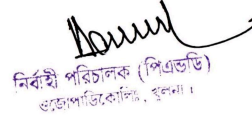 নির্বাহী পরিচালক (পিএন্ডডি)
ওজোপাডিকোলিঃ, খুলনা।